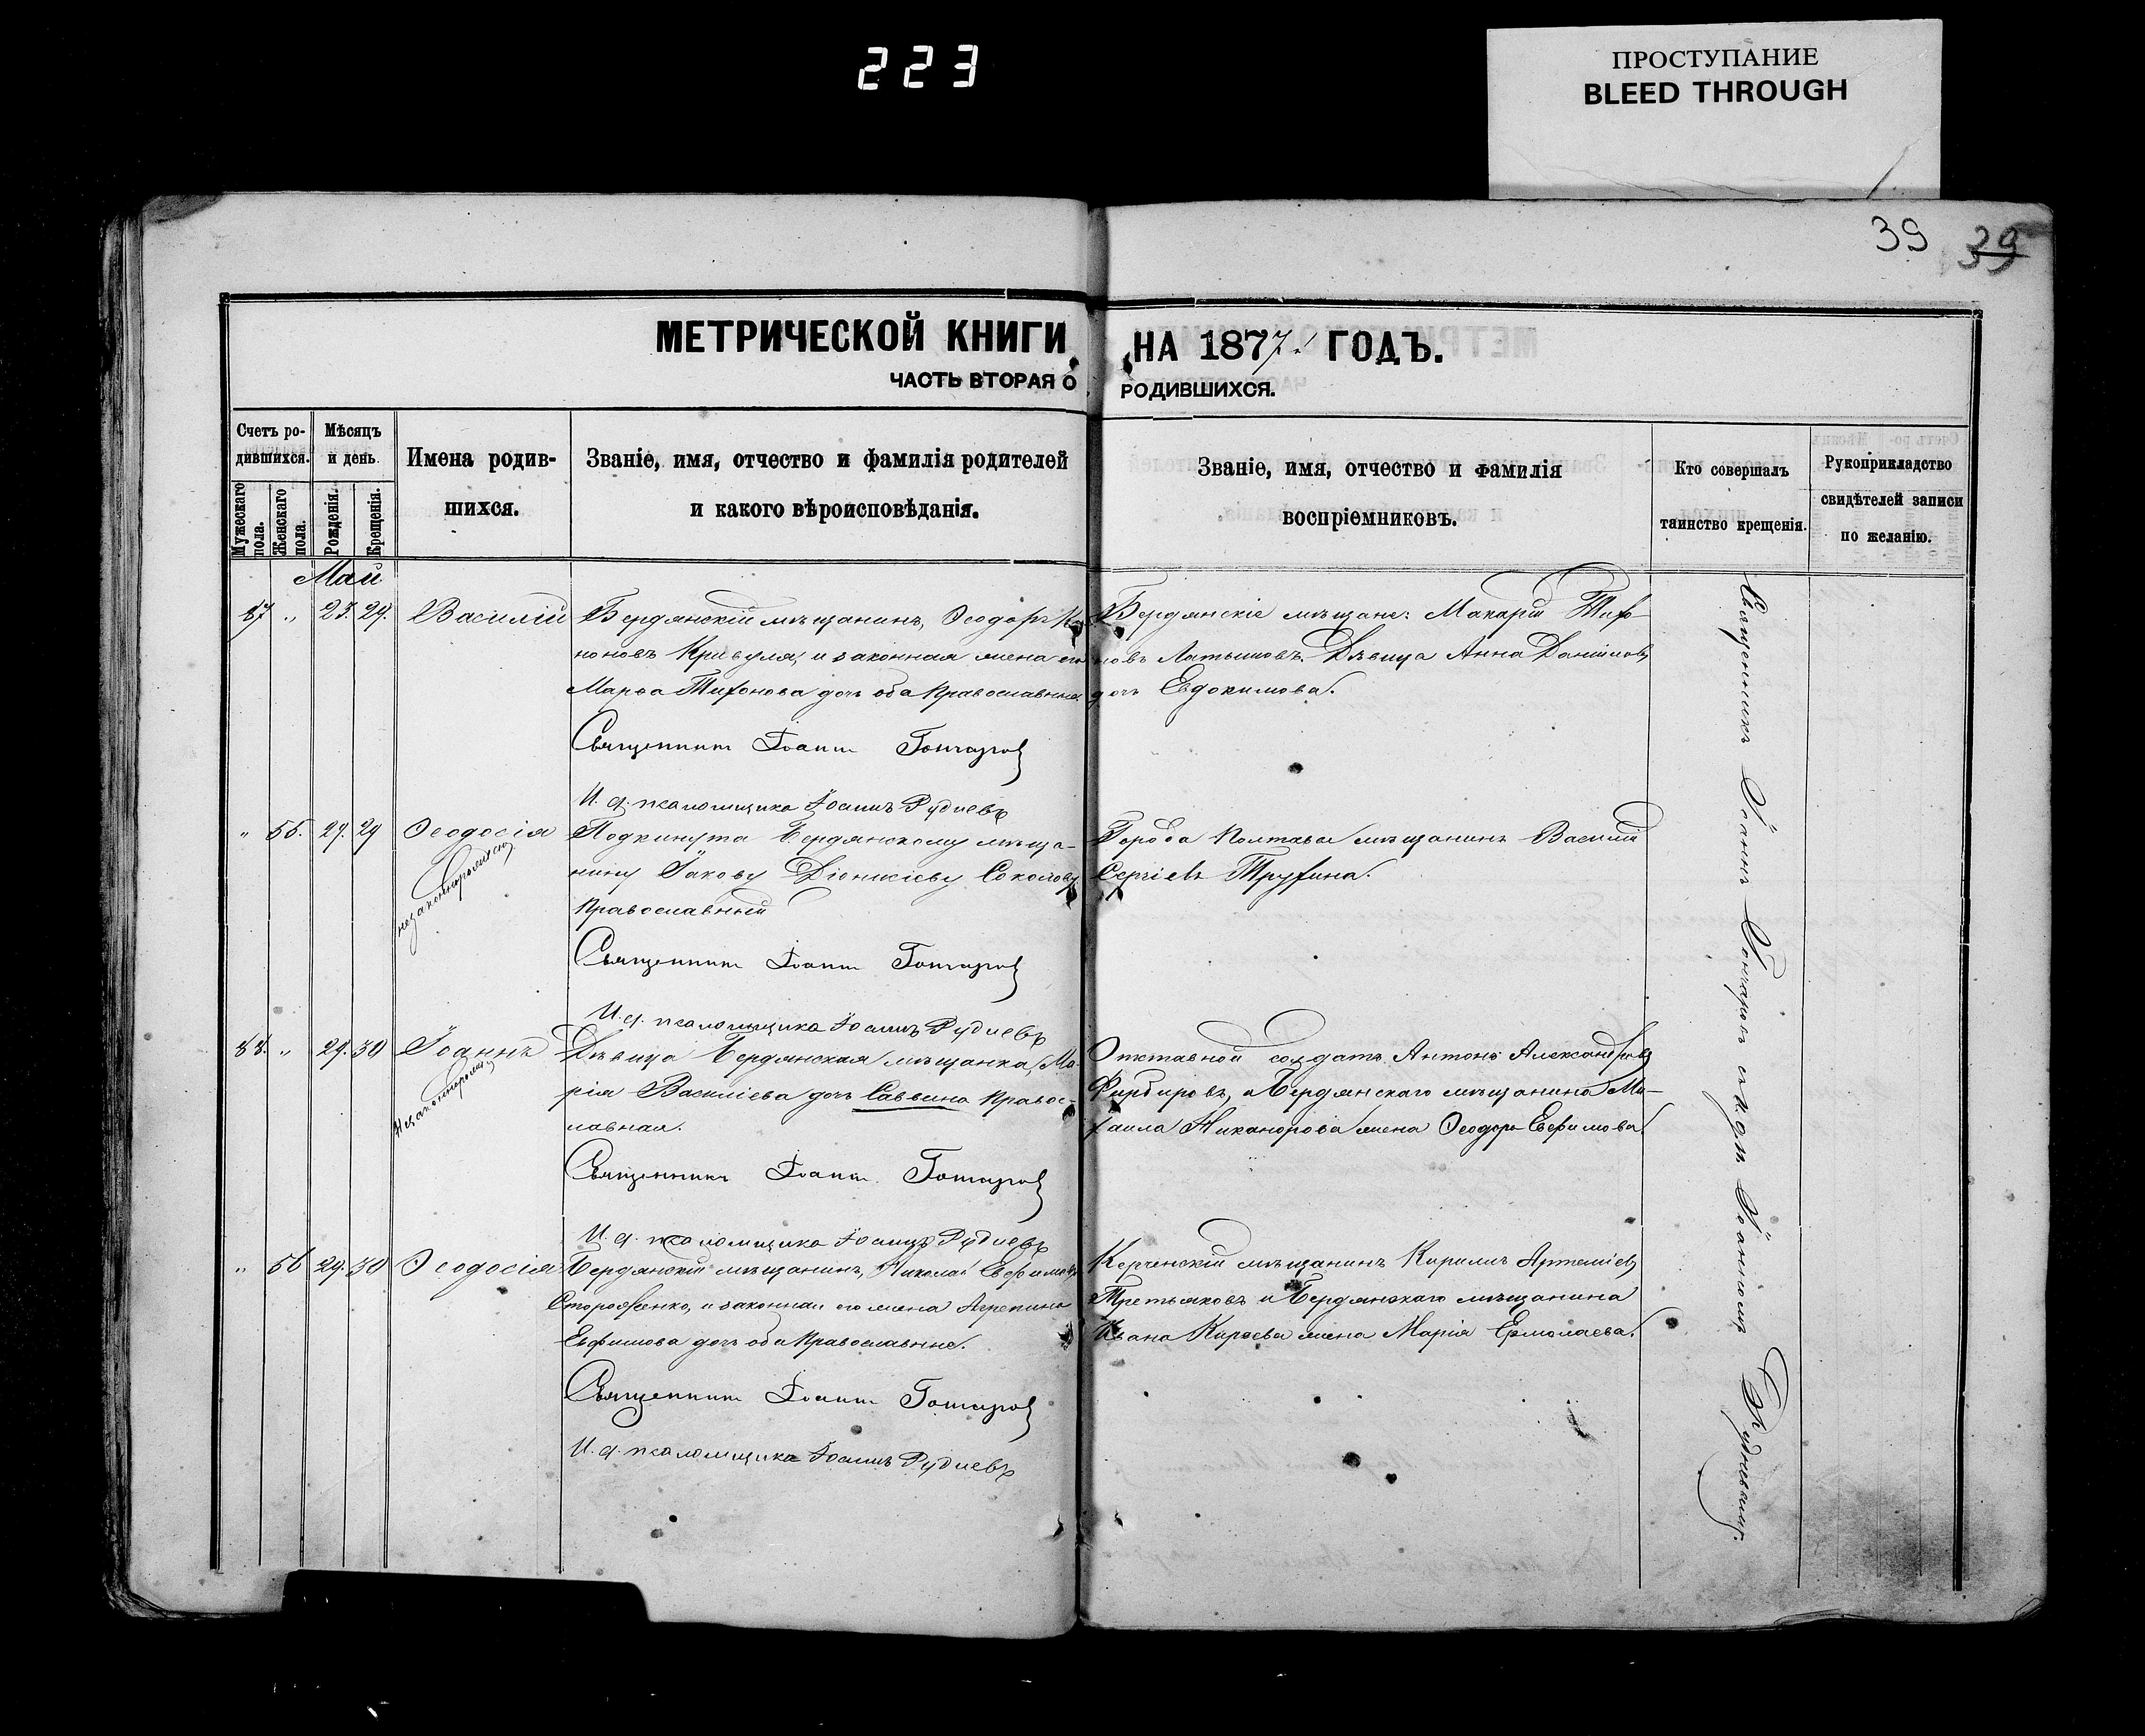 223
ПРОСТУПАНИЕ
BLEED THROUGH
39 39
МЕТРИЧЕСКОЙ КНИГИ НА 1877 ГОДЪ.
ЧАСТЬ ВТОРАЯ О РОДИВШИХСЯ.
Счетъ ро-
дившихся.
Мужескаго пола.
Женскаго пола.
Мѣсяцъ
и день.
Рожденія.
Крещенія.
Имена родив-
шихся.
Званіе, имя, отчество и фамилія родителей
и какого вѣроисповѣданія.
Званіе, имя, отчество и фамилія
воспріемниковъ.
Кто совершалъ
таинство крещенія.
Рукоприкладство
свидѣтелей записи
по желанію.
Май
87 „ 23. 29. Василій
Бердянскій мѣщанинъ, Ѳеодоръ Ко
ноновъ Кривуля, и законная жена его
Марѳа Тихонова дочь оба Православные
Священникъ Іоаннъ Гончаровъ
И. д. псаломщика Іоаннъ Рудневъ
Бердянскіе мѣщане: Макарій Тихо-
новъ Латышовъ. Дѣвица Анна Даніилов
дочь Евдокимова.
„ 55. 27. 29 Ѳеодосія
незаконнорожден
Подкинута Бердянскому мѣща-
нину Іакову Діонисіеву Соколову
Православный
Священникъ Іоаннъ Гончаровъ
И. д. псаломщика Іоаннъ Рудневъ
Города Полтавы мѣщанинъ Василій
Сергіевъ Трухина.
88. „ 29. 30 Іоаннъ
Незаконнорожд
Дѣвица Бердянская мѣщанка, Ма-
рія Василіева дочь Саввина Правос-
лавная.
Священникъ Іоаннъ Гончаровъ
И. д. псаломщика Іоаннъ Рудневъ
Отставной солдатъ Антонъ Александровъ
и Бердянскаго мѣщанина Ми-
хаила Никанорова жена Ѳеодора Евфимова.
„ 56 29. 30 Ѳеодосія
Бердянскій мѣщанинъ, Николай Евфимовъ
Стороженко, и законная его жена Агрепина
Евфимова дочь оба Православные.
Священникъ Іоаннъ Гончаровъ
И. д. псаломщика Іоаннъ Рудневъ
Керченскій мѣщанинъ Кирилъ Артеміевъ
Третьяковъ и Бердянскаго мѣщанина
Ивана Киреева жена Марія Ермолаева.
Священникъ Іоаннъ Гончаровъ съ И. д. п. Іоанномъ Рудневымъ.